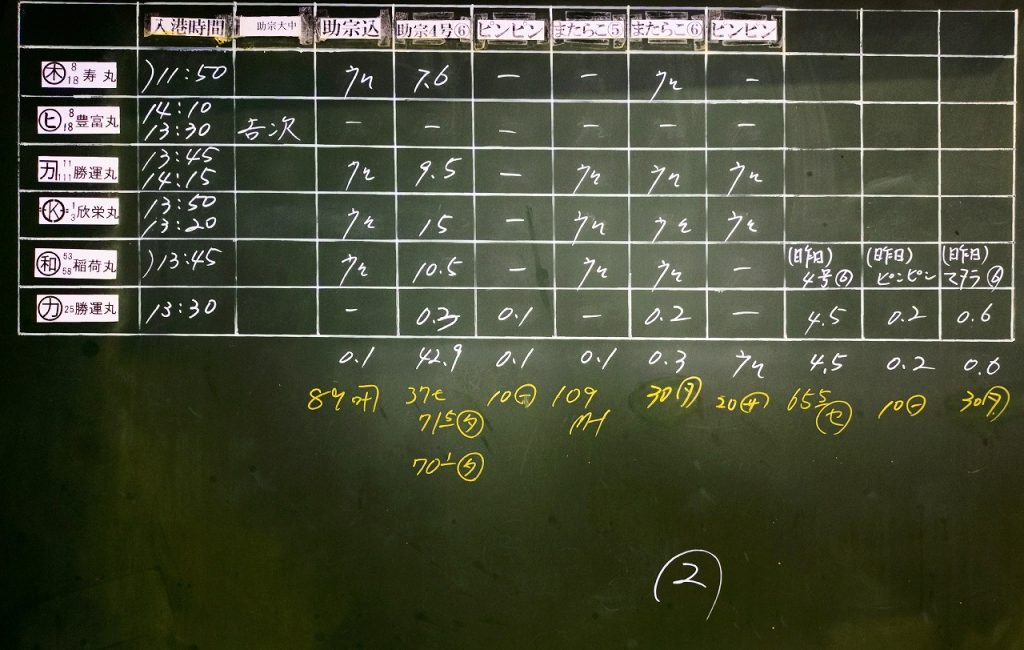 入港時間 助宗大中 助宗込 助宗4号⑥ ピンピン またらこ⑤ またらこ⑥ ピンピン
木 8 18 寿丸 )11:50 ウn 7.6 ー ー ウn ー
ヒ 8 18 豊富丸 14:10 13:30 吉次 ー ー ー ー ー ー
カ 11 111 勝運丸 13:45 14:15 ウn 9.5 ー ウn ウn ウn
K 1 3 欣栄丸 13:50 13:20 ウn 15 ー ウn ウn ウn
和 53 58 稲荷丸 )13:45 ウn 10.5 ー ウn ウn ー (昨日) 4号⑥ (昨日) ピンピン (昨日) マタラ⑥
カ 25 勝運丸 13:30 ー 0.2 0.1 ー 0.2 ー 4.5 0.2 0.6
0.1 42.9 0.1 0.1 0.3 ウn 4.5 0.2 0.6
37 10 109 30 20 655 10 30
715
70
2